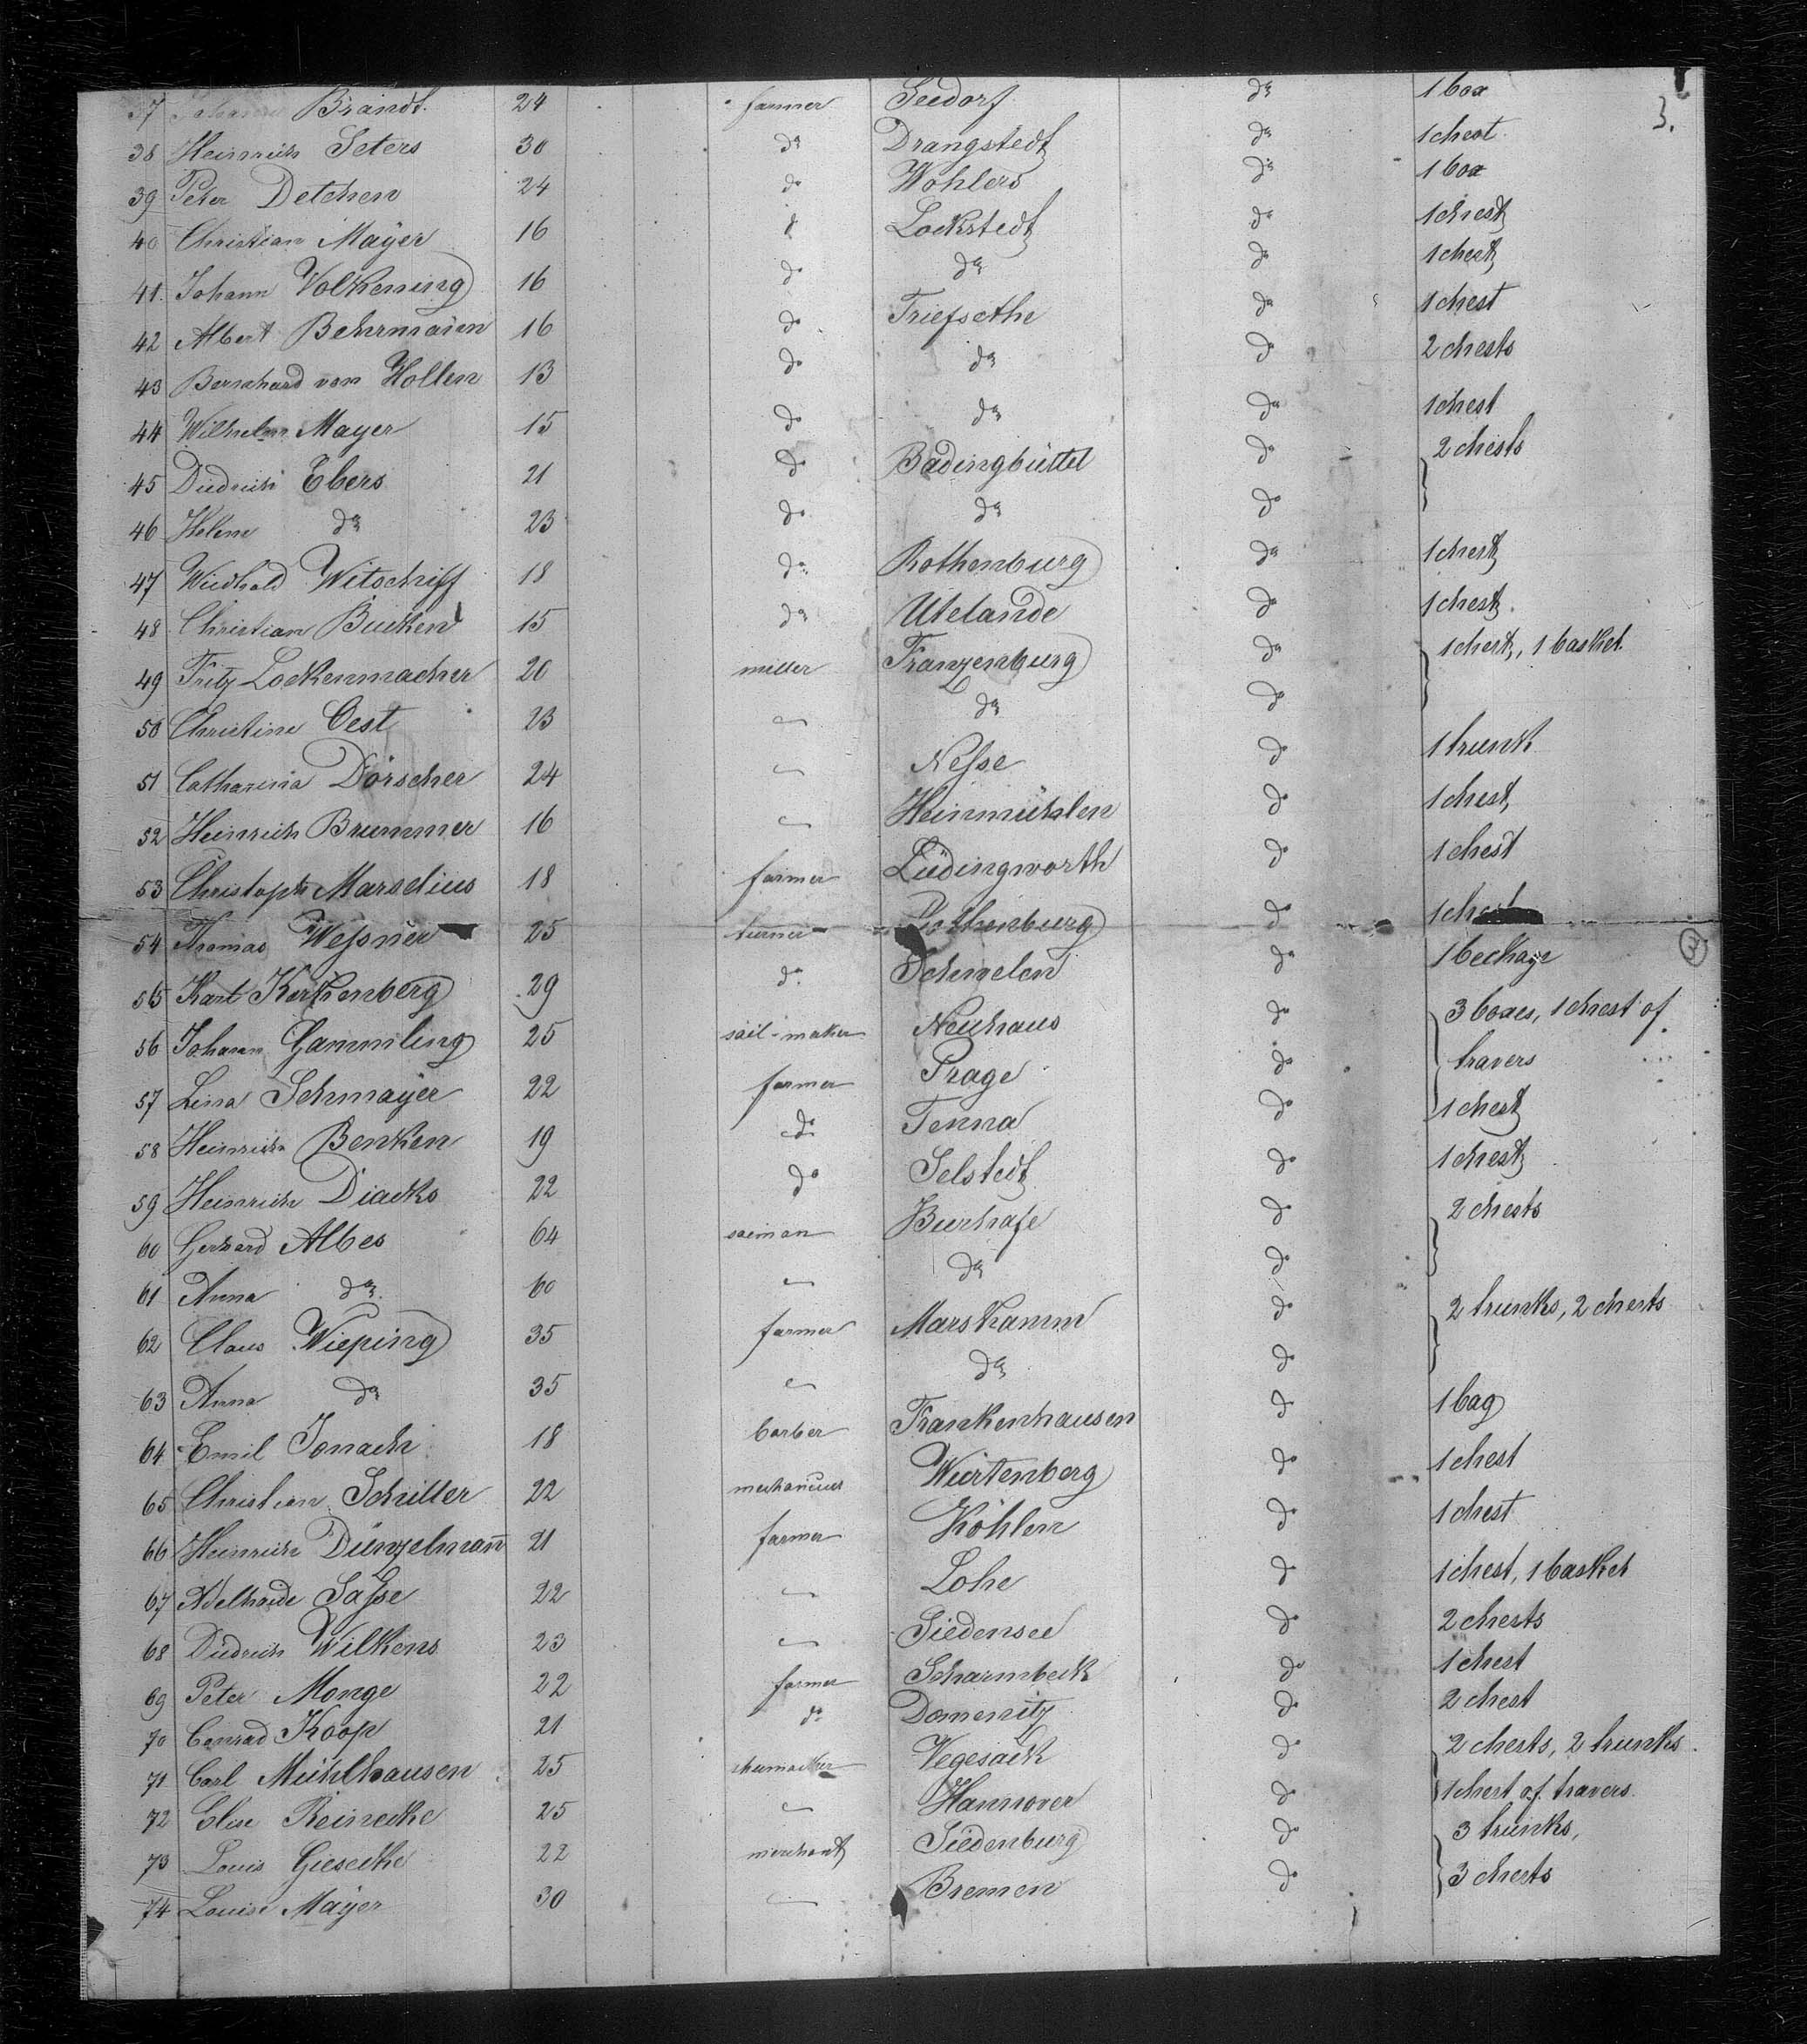 3.
37 Johann Brandt. 24 farmer Seedorf do 1 box
38 Heinrich Seters 30 do Drangstedt do 1 chest
39 Peter Detchen 24 do Wohlers do 1 box
40 Christian Mayer 16 do Lockstedt do 1 chest
41. Johann Volkening 16 do do do 1 chest
42 Albert Behrmann 16 do Triefsethe do 1 chest
43 Bernhard von Hollen 13 do do do 2 chests
44 Wilhelm Mayer 15 do do do 1 chest
45 Diedrich Ebers 21 do Badingbüttel do 2 chests
46 Helene do 23 do do do
47 Witschiff 18 do Rothenburg do 1 chest
48 Christian Bucken 15 do Utelande do 1 chest
49 Fritz Lockenmacher 20 miller Franzenburg do 1 chest, 1 basket
50 Christine Oest 23 do do
51 Catharina Dörscher 24 Nesse do 1 trunk
52 Heinrich Brummer 16 Heinmühlen do 1 chest
53 Christoph Marselius 18 farmer Lüdingworth do 1 chest
54 Thomas Wessner 25 turner Gothenburg do 1 chest
55 Karl Kerkenberg 29 do Schmelen do 1
56 Johann Gammling 25 sail-maker Neuhaus do 3 boxes, 1 chest of
57 Lina Schmayer 22 farmer Prage do travers
58 Heinrich Benken 19 do Tenna do 1 chest
59 Heinrich Diacks 22 do Selstedt do 1 chest
60 Gerhard Albes 64 seaman Burhafe do 2 chests
61 Anna do 60 do do
62 Claus Wieping 35 farmer Marskamm do 2 trunks, 2 chests
63 Anna do 35 do do
64 Emil Jonach 18 barber Frankenhausen do 1 bag
65 Christian Schiller 22 mechanicus Würtenberg do 1 chest
66 Heinrich Dünzelmann 21 farmer Köhlen do 1 chest
67 Adelheide Sasse 22 Lohe do 1 chest, 1 basket
68 Diedrich Wilkens 23 Siedensee do 2 chests
69 Peter Monge 22 farmer Scharmbeck do 1 chest
70 Conrad Koop 21 do Domenitz do 2 chest
71 Carl Mühlhausen 25 shumacker Vegesack do 2 chests, 2 trunks
72 Elise Reinecke 25 Hannover do 1 chest of travers
73 Louis Giesecke 22 merchant Siedenburg do 3 trunks,
74 Louise Mayer 30 Bremen do 3 chests